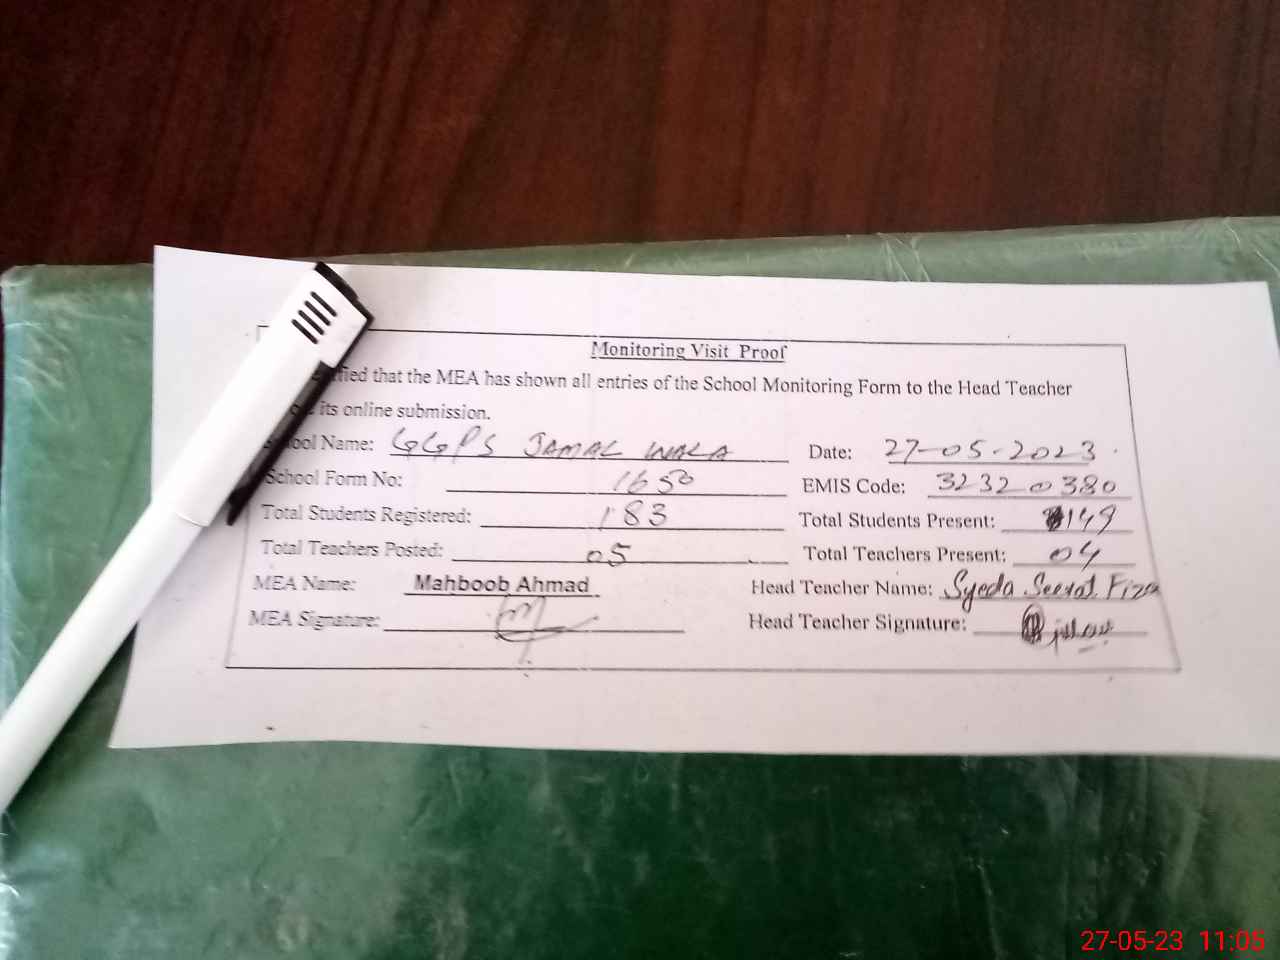 Monitoring Visit Proof
that the MEA has shown all entries of the School Monitoring Form to the Head Teacher
its online submission.
School Name: GGPS JAMAL WALA Date: 27-05-2023
School Form No: 1650 EMIS Code: 32320380
Total Students Registered: 183 Total Students Present: 149
Total Teachers Posted: 05 Total Teachers Present: 04
MEA Name: Mahboob Ahmad Head Teacher Name: Syeda Seerat Fiza
MEA Signature: Head Teacher Signature:
27-05-23 11:05